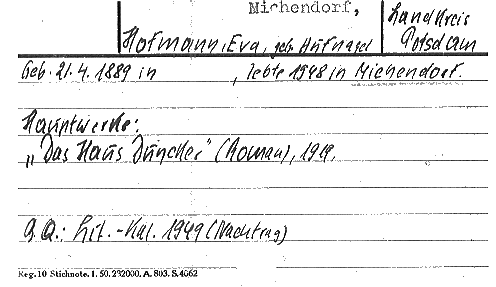 Michendorf,
Landkreis
Potsdam
Hofmann, Eva, geb. Hufnagel
Geb. 21.4.1889 in , lebte 1948 in Michendorf.
Hauptwerke:
„Das Haus Duncker" (Roman), 1919.
G.Q.: Lit.-Kal. 1949 (Nachtrag)
Reg. 10 Stichnote. I. 50. 232000. A. 803. S. 4062